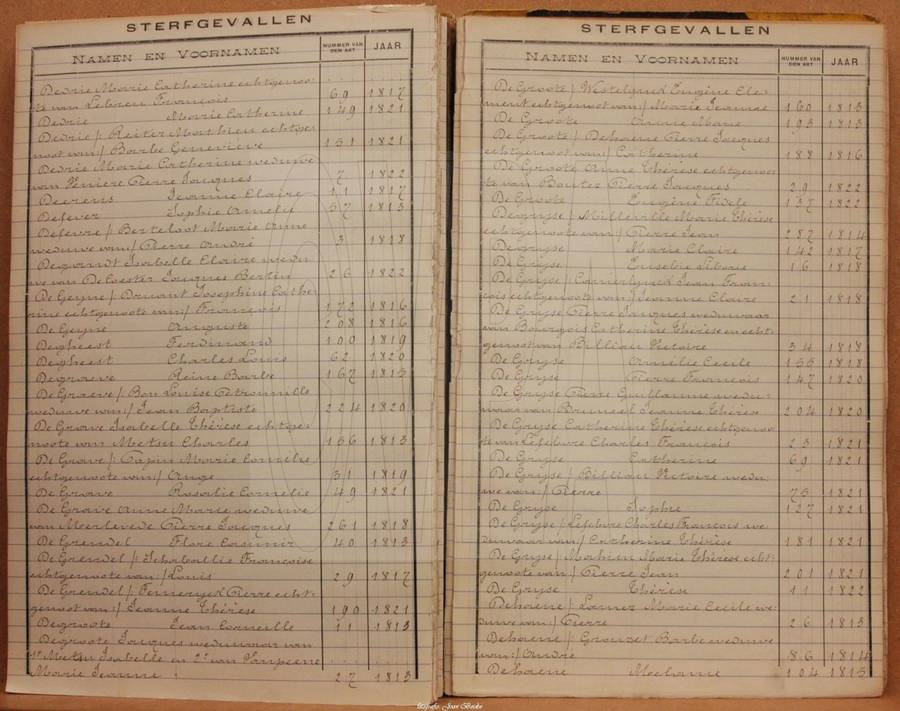 STERFGEVALLEN
NAMEN EN VOORNAMEN NUMMER VAN DEN AKT JAAR
Dedrie Marie Catherine echtgenoo-
te van Leboren François 69 1817
Dedrie Marie Catherine 149 1821
Dedrie / Reiter Matthieu echtge-
noot van / Barbe Geneviève 151 1821
Dedrie Marie Catherine weduwe
van Pierre Jacques 7 1822
Jeanne Claire 11 1817
Defever Sophie Amelie 57 1813
Defevre / Berteloot Marie Anne
weduwe van / Pierre André 3 1818
Degrandt Isabelle Claire wedu-
we van Decoester Jacques Bertin 26 1822
De Geyne / Druant Josephine Cathe-
rine echtgenoote van / François 172 1816
De Geyne Auguste 208 1816
Degheest Ferdinand 100 1819
Degheest Charles Louis 62 1820
Degraeve Reine Barbe 167 1815
De Graeve / Bon Louise Petronille
weduwe van / Jean Baptiste 224 1820
De Grave Isabelle Thérèse echtge-
noote van Metsu Charles 156 1813
De Grave / Marie Cornélie
echtgenoote van / Ange 31 1819
De Grave Rosalie Cornelie 49 1821
De Grave Anne Marie weduwe
van Merlevede Pierre Jacques 261 1818
De Grendel Flore Casimir 40 1813
De Grendel / Françoise
echtgenoote van / Louis 29 1817
De Grendel / Temeryck Pierre echt-
genoot van / Jeanne Thérèse 190 1821
Degroote Jean Corneille 11 1813
Degroote Jacques weduwnaar van
1° Metsu Isabelle en 2° van Pampeene
Marie Jeanne 27 1813
STERFGEVALLEN
NAMEN EN VOORNAMEN NUMMER VAN DEN AKT JAAR
De Groote / Westelynck Eugène Cle-
ment echtgenoot van / Marie Jeanne 160 1813
De Groote Anne Marie 193 1813
De Groote / Dehaene Pierre Jacques
echtgenoot van / Catherine 188 1816
De Groote Anne Thérèse echtgenoo-
te van Bouter Pierre Jacques 29 1822
De Groote Eugène Fidele 137 1822
Degryse / Milleville Marie Thérèse
echtgenoote van / Pierre Jean 287 1814
Degryse Marie Claire 142 1817
De Gryse Eusebie 16 1818
De Gryse / Camerlynck Jean Fran-
çois echtgenoot van / Jeanne Claire 21 1818
De Gryse Pierre Jacques weduwaar
van Bourgois Catherine Thérèse en echt-
genoot van Billiau Victoire 34 1818
De Gryse Amelie Cecile 155 1818
De Gryse Pierre François 147 1820
De Gryse Pierre Guillaume wedu-
waar van / Bruneel Jeanne Thérèse 204 1820
De Gryse Catherine Thérèse echtgenoo-
te van Lefebvre Charles François 23 1821
De Gryse Catherine 69 1821
De Gryse / Billiau Victoire wedu-
we van / Pierre 75 1821
De Gryse Sophie 127 1821
De Gryse / Lefebvre Charles François we-
duwaar van / Catherine Thérèse 181 1821
De Gryse / Mahieu Marie Thérèse echt-
genoote van / Pierre Jean 201 1821
De Gryse Thérèse 11 1822
Dehaene / Lamez Marie Cecile we-
duwe van / Pierre 26 1813
Dehaene / Grouzet Barbe weduwe
van / André 86 1814
Dehaene Melanie 104 1815